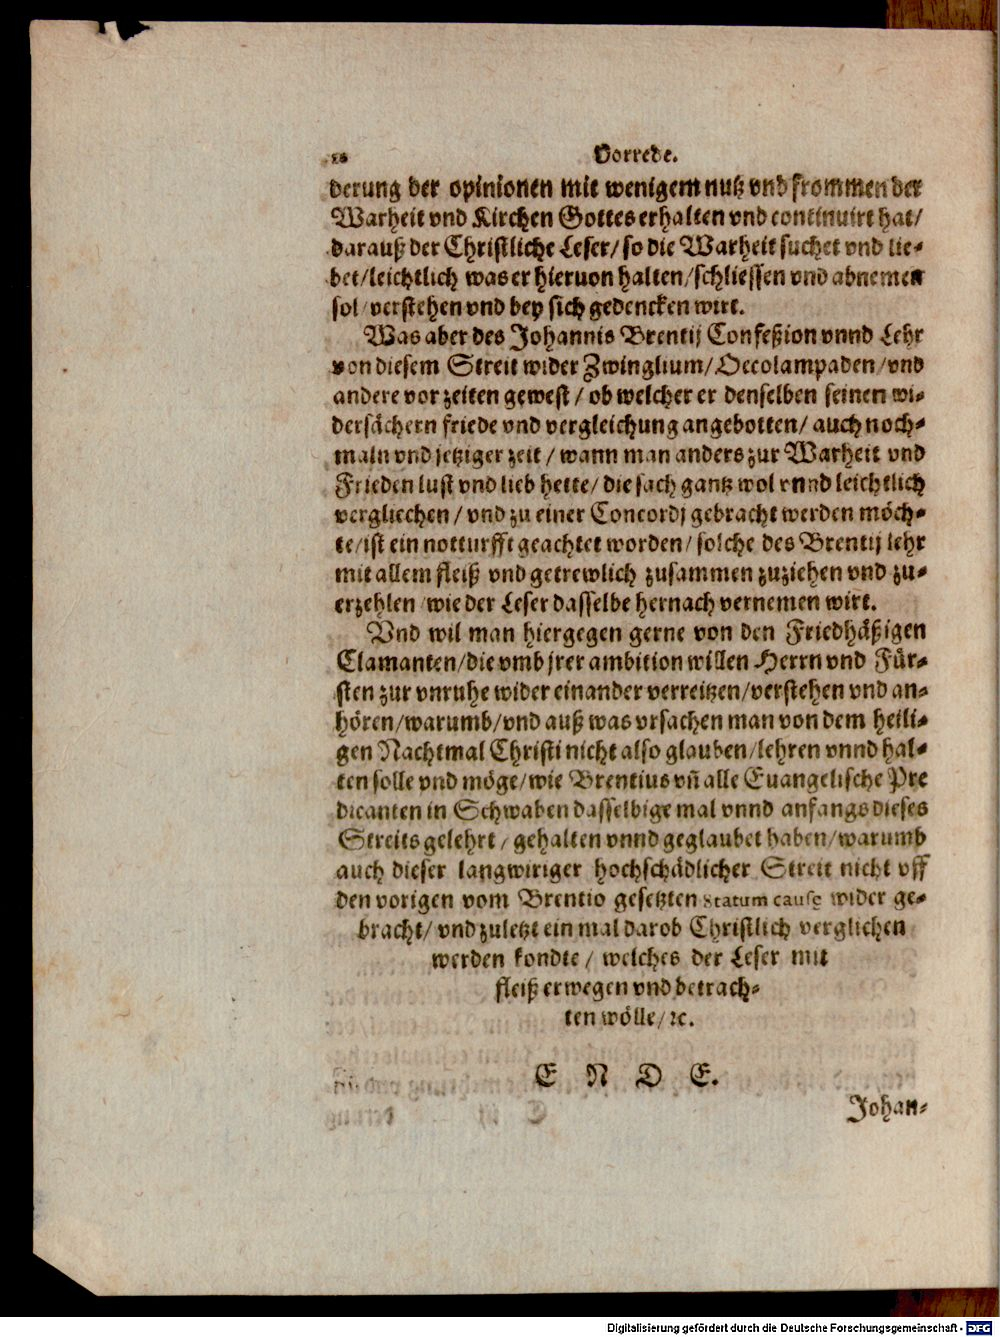 Vorrede.
derung der opinionen mit wenigem nutz vnd frommen der
Warheit vnd Kirchen Gottes erhalten vnd continuirt hat/
darauß der Christliche Leser/ so die Warheit suchet vnd lie-
bet/leichtlich was er hieruon halten/schliessen vnd abnemen
sol/verstehen vnd bey sich gedencken wirt.
Was aber des Johannis Brentij Confeßion vnnd Lehr
von diesem Streit wider Zwinglium/Oecolampaden/vnd
andere vor zeiten gewest/ ob welcher er denselben seinen wi-
dersächern friede vnd vergleichung angebotten/ auch noch-
maln vnd jetziger zeit/ wann man anders zur Warheit vnd
Frieden lust vnd lieb hette/ die sach gantz wol vnnd leichtlich
vergliechen/ vnd zu einer Concordj gebracht werden möch-
te/ist ein notturfft geachtet worden/ solche des Brentij lehr
mit allem fleiß vnd getrewlich zusammen zuziehen vnd zu-
erzehlen/wie der Leser dasselbe hernach vernemen wirt.
Vnd wil man hiergegen gerne von den Friedhäßigen
Clamanten/die vmb jrer ambition willen Herrn vnd Für-
sten zur vnruhe wider einander verreitzen/verstehen vnd an-
hören/warumb/vnd auß was vrsachen man von dem heili-
gen Nachtmal Christi nicht also glauben/lehren vnnd hal-
ten solle vnd möge/wie Brentius vn̄ alle Euangelische Pre
dicanten in Schwaben dasselbige mal vnnd anfangs dieses
Streits gelehrt/ gehalten vnnd geglaubet haben/warumb
auch dieser langwiriger hochschädlicher Streit nicht vff
den vorigen vom Brentio gesetzten Statum causę wider ge-
bracht/ vnd zuletzt ein mal darob Christlich verglichen
werden kondte/ welches der Leser mit
fleiß erwegen vnd betrach-
ten wölle/ ꝛc.
E N D E.
Johan-
Digitalisierung gefördert durch die Deutsche Forschungsgemeinschaft - DFG